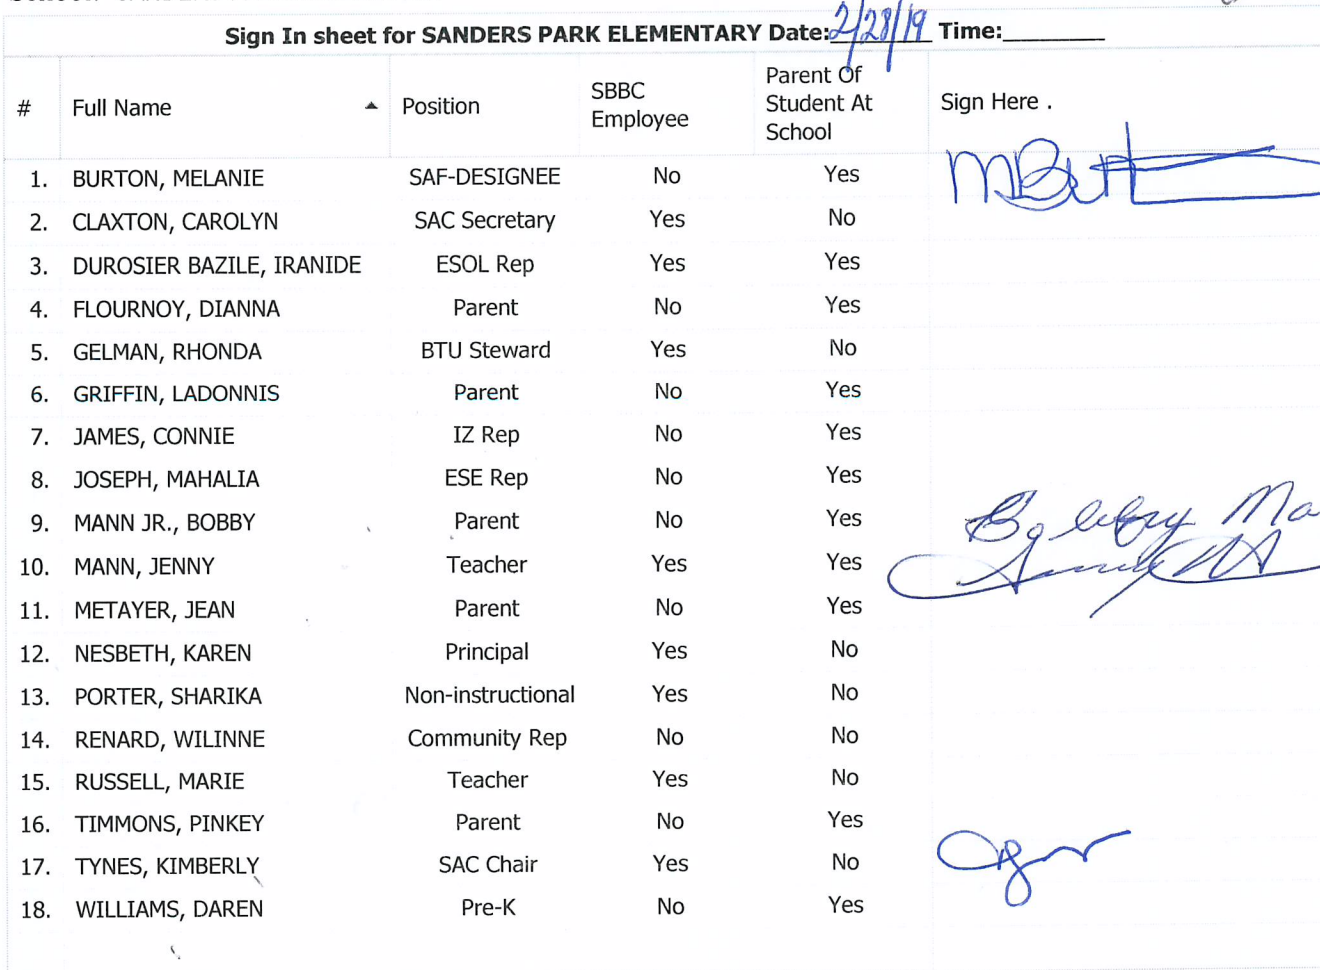 Sign In sheet for SANDERS PARK ELEMENTARY Date: 2/28/19 Time:________
# Full Name Position SBBC Employee Parent Of Student At School Sign Here .
1. BURTON, MELANIE SAF-DESIGNEE No Yes MBurt
2. CLAXTON, CAROLYN SAC Secretary Yes No
3. DUROSIER BAZILE, IRANIDE ESOL Rep Yes Yes
4. FLOURNOY, DIANNA Parent No Yes
5. GELMAN, RHONDA BTU Steward Yes No
6. GRIFFIN, LADONNIS Parent No Yes
7. JAMES, CONNIE IZ Rep No Yes
8. JOSEPH, MAHALIA ESE Rep No Yes
9. MANN JR., BOBBY Parent No Yes Bobby Ma
10. MANN, JENNY Teacher Yes Yes
11. METAYER, JEAN Parent No Yes
12. NESBETH, KAREN Principal Yes No
13. PORTER, SHARIKA Non-instructional Yes No
14. RENARD, WILINNE Community Rep No No
15. RUSSELL, MARIE Teacher Yes No
16. TIMMONS, PINKEY Parent No Yes
17. TYNES, KIMBERLY SAC Chair Yes No
18. WILLIAMS, DAREN Pre-K No Yes